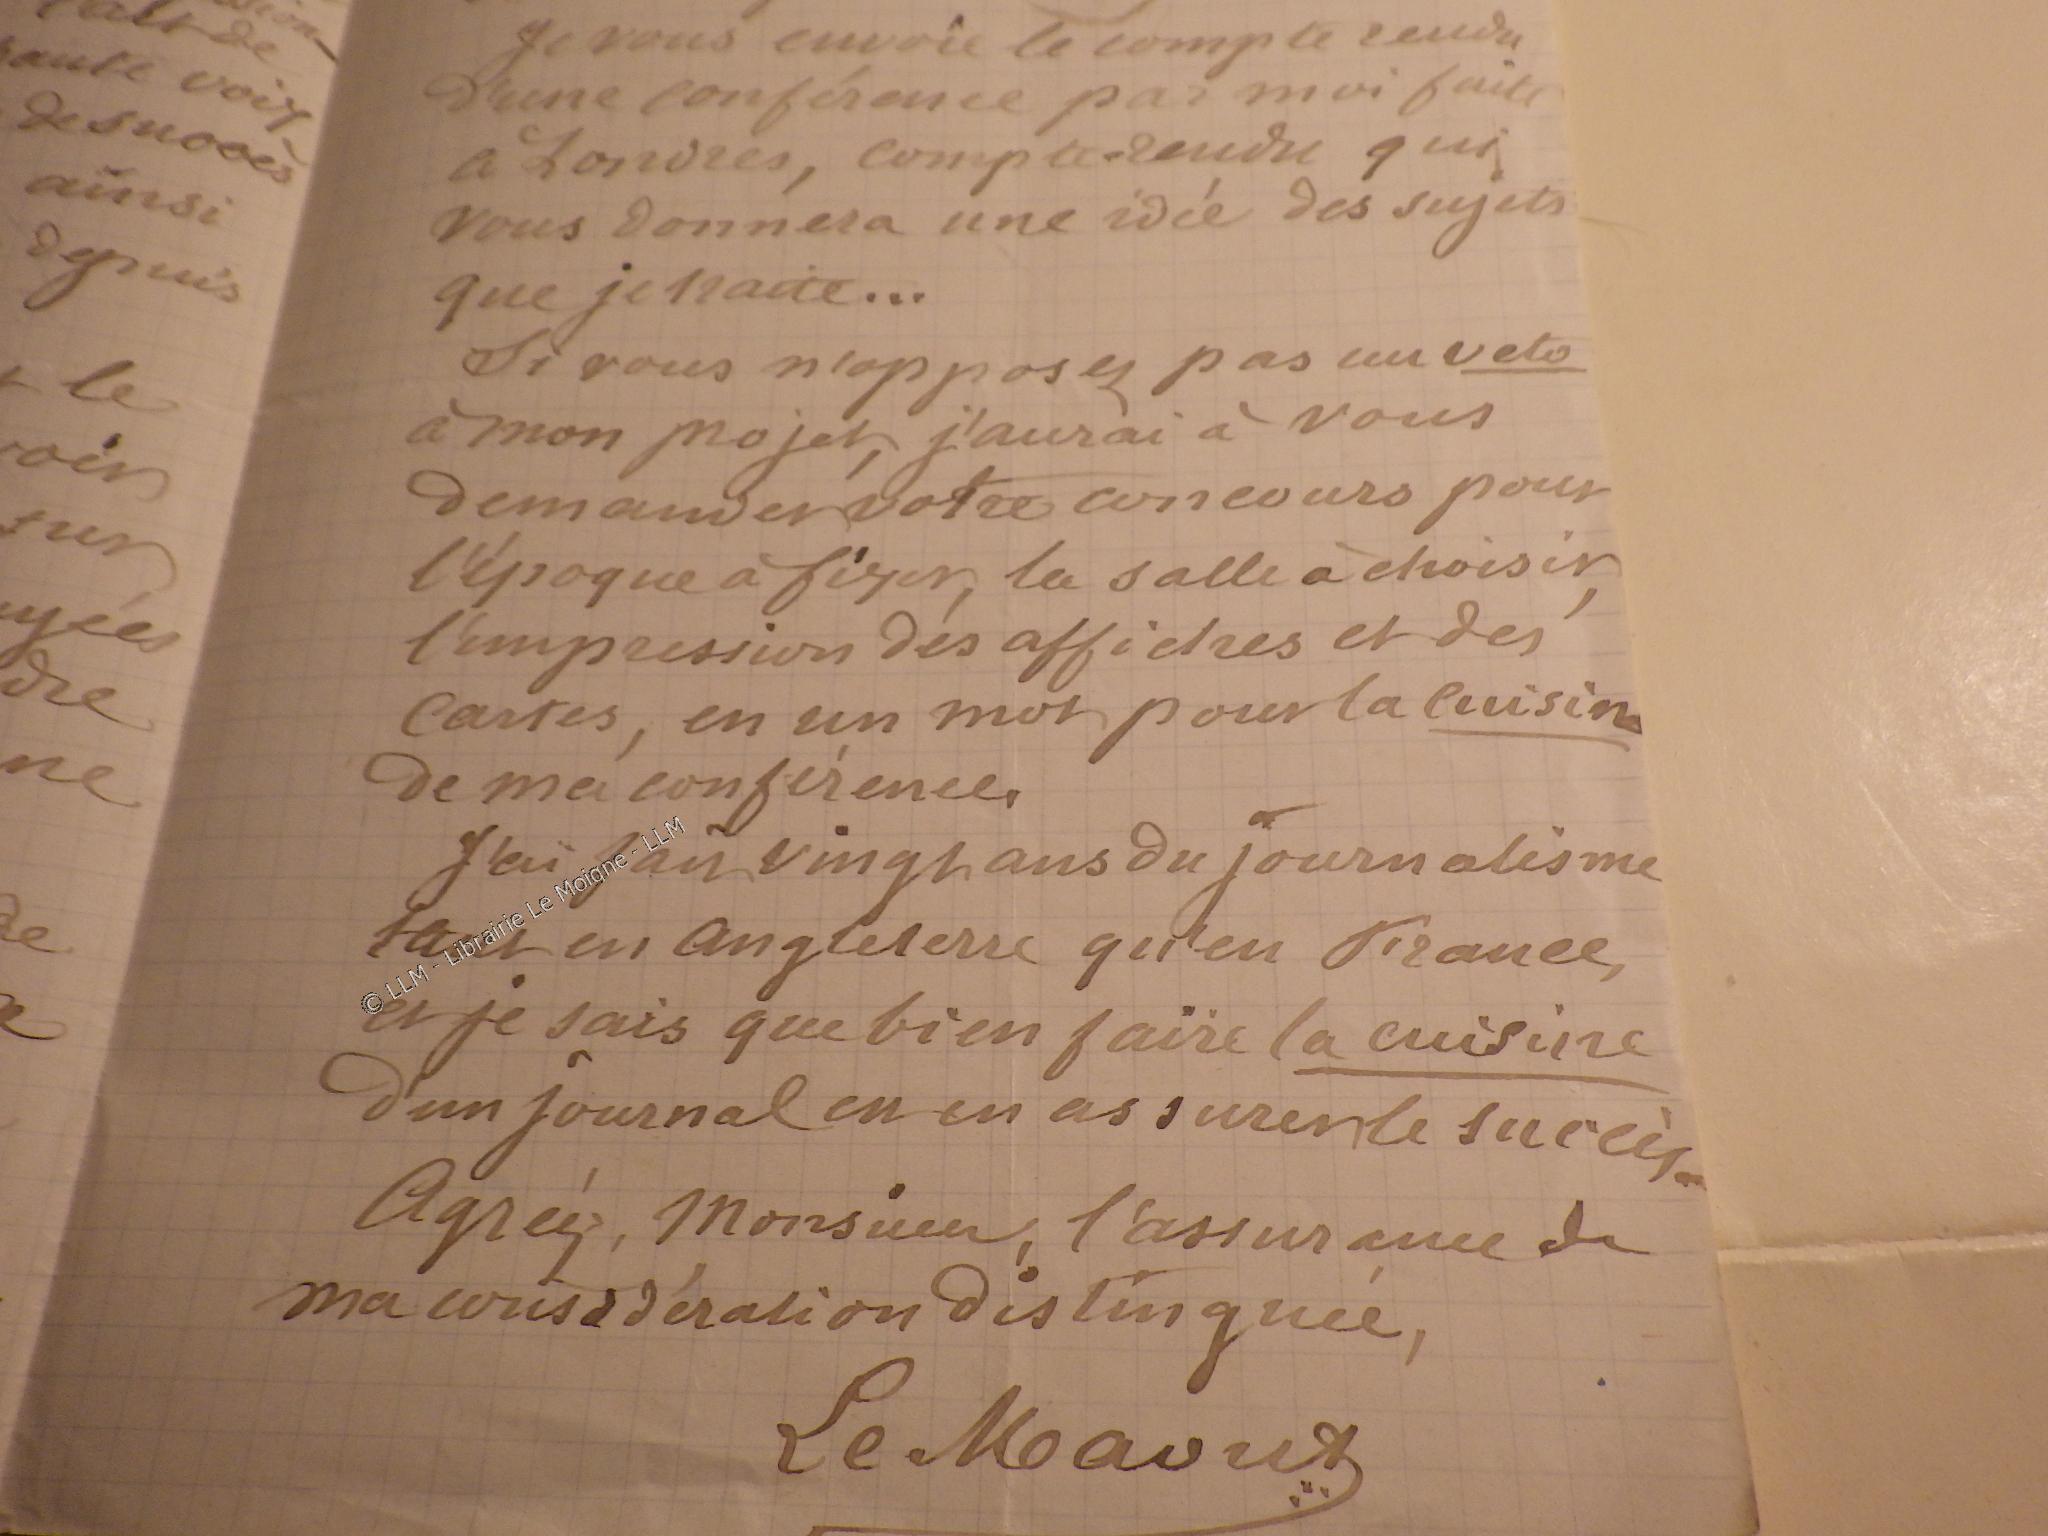 voix
ainsi
depuis
le
Je vous envoie le compte rendu
d'une conférence par moi faite
à Londres, compte-rendu qui
vous donnera une idée des sujets
que je traite...
Si vous n'opposez pas un veto
à mon projet, j'aurai à vous
demander votre concours pour
l'époque à fixer, la salle à choisir,
l'impression des affiches et des
cartes, en un mot pour la cuisine
de ma conférence.
J'ai fait vingt ans du journalisme
tant en Angleterre qu'en France,
et je sais que bien faire la cuisine
d'un journal c'est en assurer le succès.
Agréez, Monsieur, l'assurance de
ma considération distinguée,
© LLM - Librairie Le Moigne - LLM